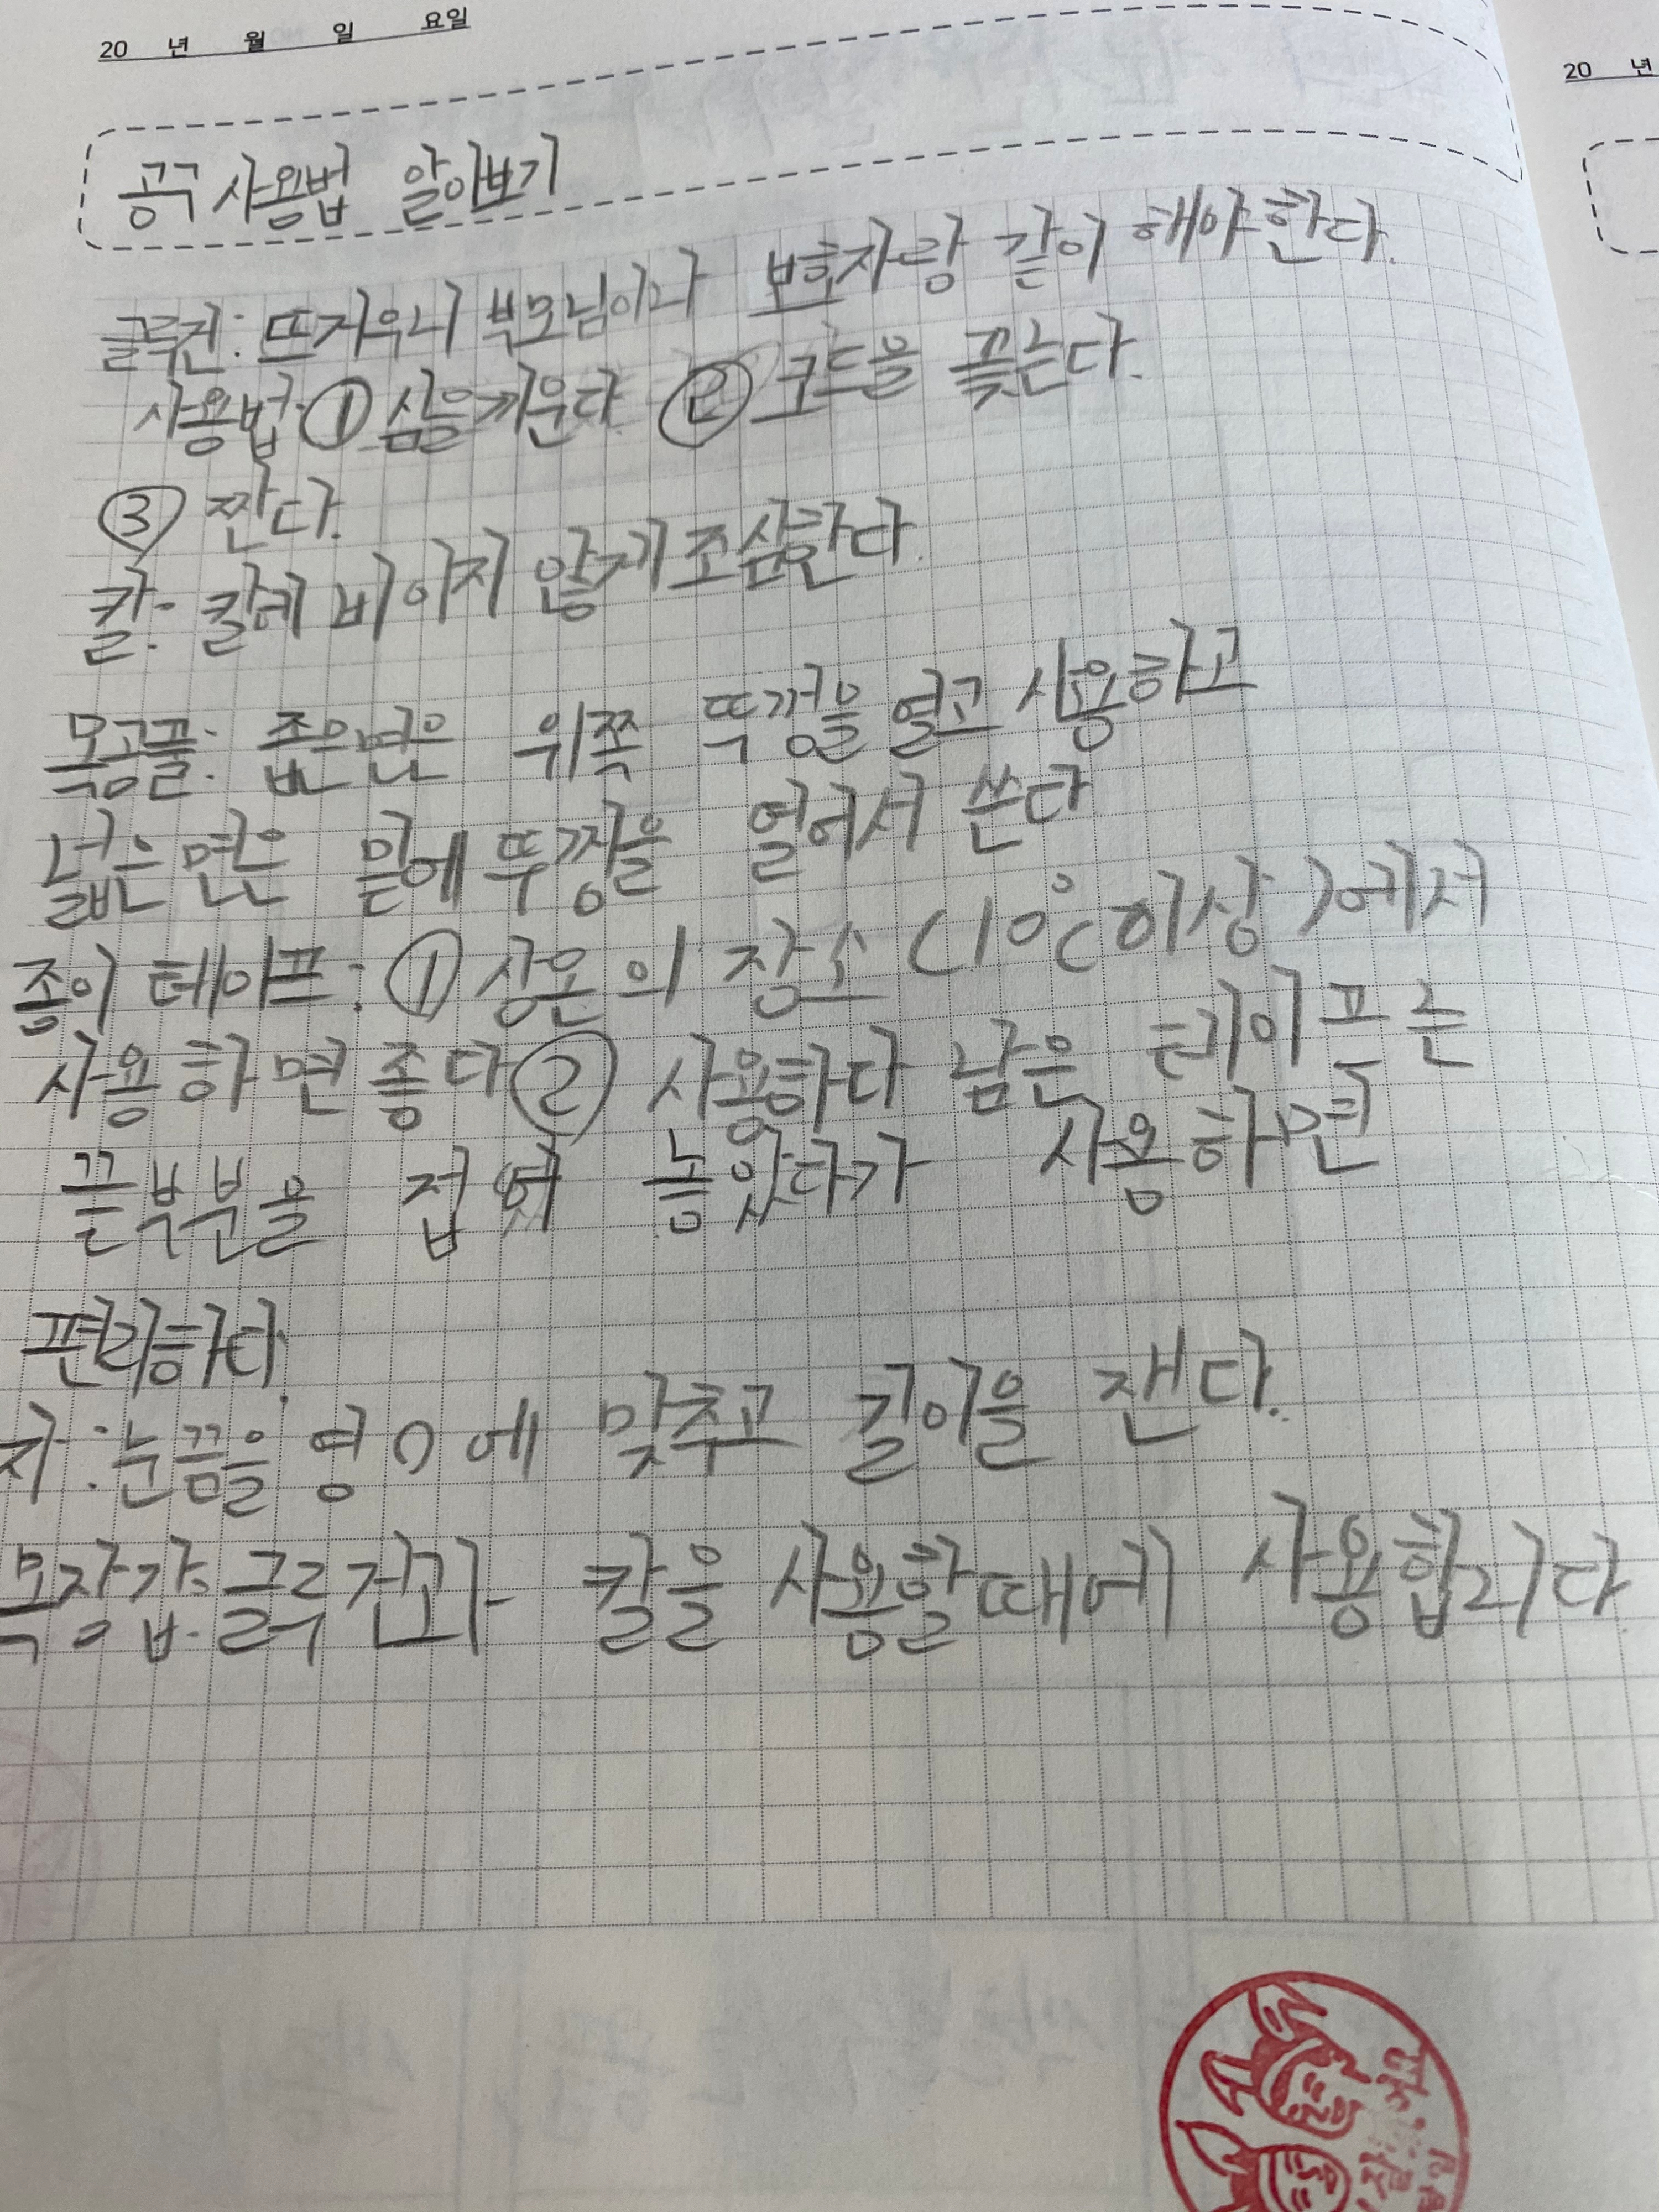 20 년 월 일 요일
20 년
공구 사용법 알아보기
글루건: 뜨거우니 부모님이나 보호자랑 같이 해야한다.
사용법: ① 심을 끼운다 ② 코드를 꽂는다.
③ 짠다.
칼: 칼에 비이지 않게 조심한다.
목공풀: 좁은면은 위쪽 뚜껑을 열고 사용하고
넓은 면은 밑에 뚜껑을 열어서 쓴다
종이 테이프: ① 상온의 장소 (10℃ 이상)에서
사용하면 좋다 ② 사용하다 남은 테이프는
끝부분을 접어 놓았다가 사용하면
편리하다.
자: 눈끔을 영 0에 맞추고 길이을 잰다.
목장갑: 글루건과 칼을 사용할때에 사용합니다